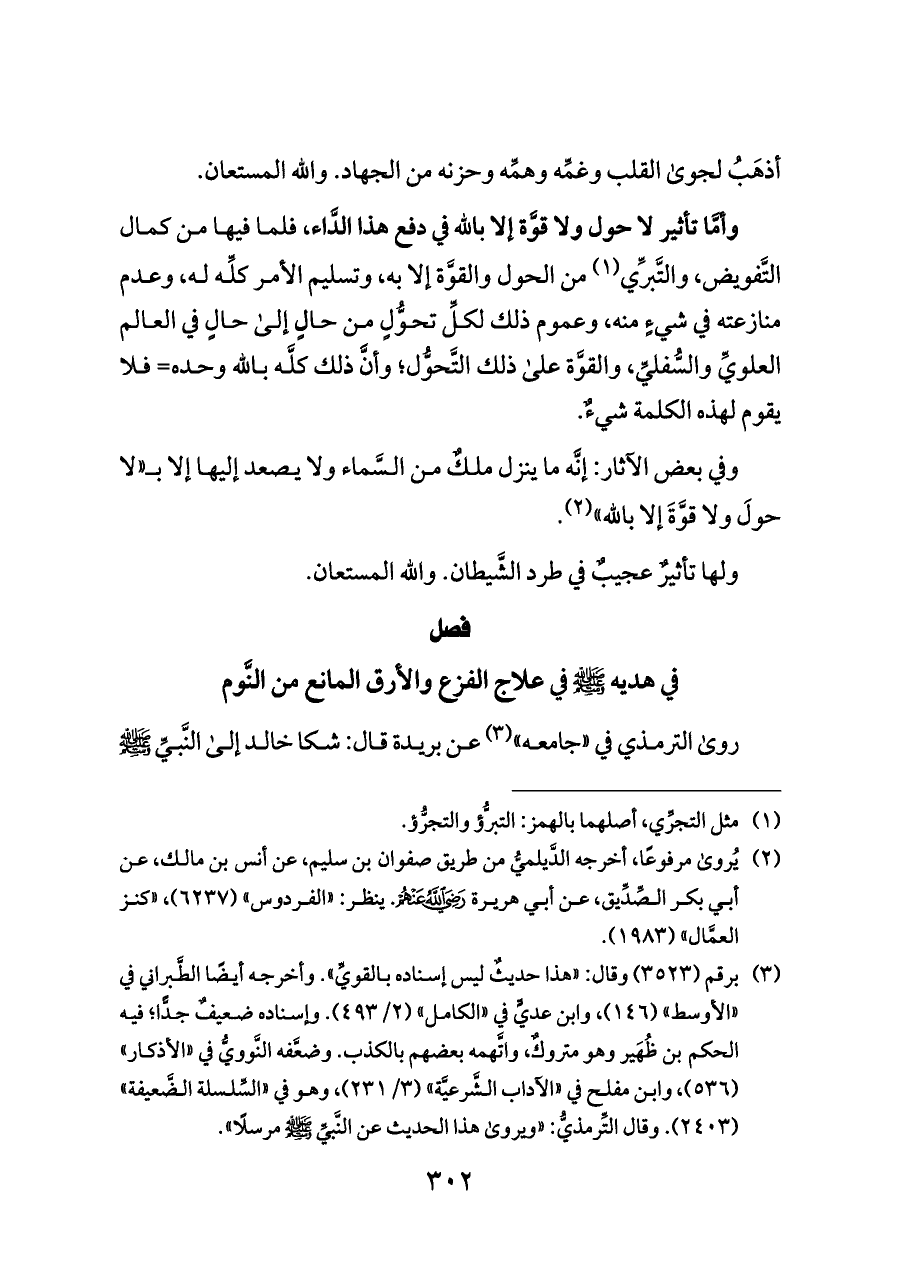 أذهَبُ لجوىٰ القلب وغمِّه وهمِّه وحزنه من الجهاد. والله المستعان.
وأمَّا تأثير لا حول ولا قوَّة إلا بالله في دفع هذا الدَّاء، فلما فيها من كمال
التَّفويض، والتَّبرِّي(١) من الحول والقوَّة إلا به، وتسليم الأمر كلِّه له، وعدم
منازعته في شيءٍ منه، وعموم ذلك لكلِّ تحوُّلٍ من حالٍ إلىٰ حالٍ في العالم
العلويِّ والسُّفليِّ، والقوَّة علىٰ ذلك التَّحوُّل؛ وأنَّ ذلك كلَّه بالله وحده= فلا
يقوم لهذه الكلمة شيءٌ.
وفي بعض الآثار: إنَّه ما ينزل ملكٌ من السَّماء ولا يصعد إليها إلا بـ«لا
حولَ ولا قوَّةَ إلا بالله»(٢).
ولها تأثيرٌ عجيبٌ في طرد الشَّيطان. والله المستعان.
فصل
في هديه ﷺ في علاج الفزع والأرق المانع من النَّوم
روىٰ الترمذي في «جامعه»(٣) عن بريدة قال: شكا خالد إلىٰ النَّبيِّ ﷺ
(١) مثل التجرِّي، أصلهما بالهمز: التبرُّؤ والتجرُّؤ.
(٢) يُروىٰ مرفوعًا، أخرجه الدَّيلميُّ من طريق صفوان بن سليم، عن أنس بن مالك، عن
أبي بكر الصِّدِّيق، عن أبي هريرة رَضِيَ اللَّهُ عَنْهُمْ. ينظر: «الفردوس» (٦٢٣٧)، «كنز
العمَّال» (١٩٨٣).
(٣) برقم (٣٥٢٣) وقال: «هذا حديثٌ ليس إسناده بالقويِّ». وأخرجه أيضًا الطَّبراني في
«الأوسط» (١٤٦)، وابن عديٍّ في «الكامل» (٢/ ٤٩٣). وإسناده ضعيفٌ جدًّا؛ فيه
الحكم بن ظُهَير وهو متروكٌ، واتَّهمه بعضهم بالكذب. وضعَّفه النَّوويُّ في «الأذكار»
(٥٣٦)، وابن مفلح في «الآداب الشَّرعيَّة» (٣/ ٢٣١)، وهو في «السِّلسلة الضَّعيفة»
(٢٤٠٣). وقال التِّرمذيُّ: «ويروىٰ هذا الحديث عن النَّبيِّ ﷺ مرسلًا».
٣٠٢